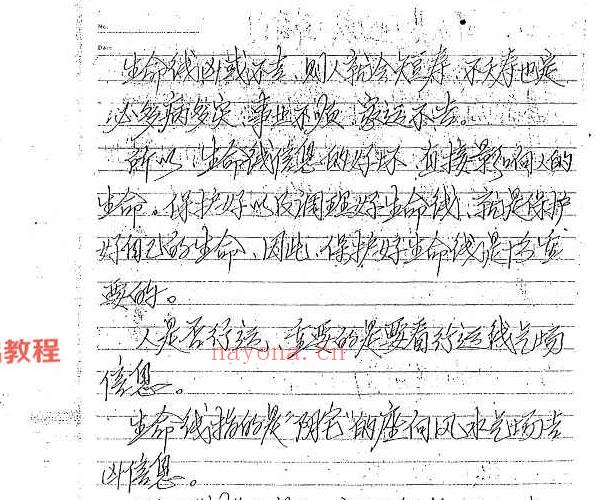 No.
Date
生命线凶或不吉、则人就会短寿、不夭寿也定
必多病多灾、事业不顺、家运不吉。
所以、生命线信息的好坏、直接影响人的
生命。保护好以及调理好生命线、就是保护
好自己的生命、因此、保护好生命线是片重
要的。
人是否行运、重要的是要看行运线气场
信息。
生命线指的是“阴宅”的座向风水气场吉
凶信息。
教程
nayona.cn